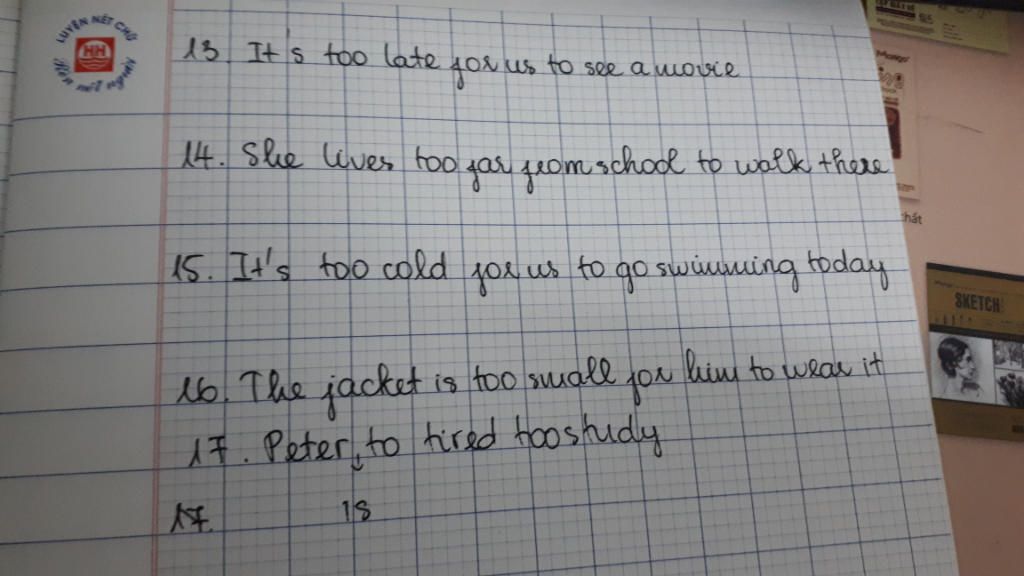 LUYỆN NÉT CHỮ
HH
Rèn nết người
13 It's too late for us to see a movie
14. She lives too far from school to walk there
15. It's too cold for us to go swimming today
16. The jacket is too small for him to wear it
17. Peter, to tired too study
17. is
SKETCH